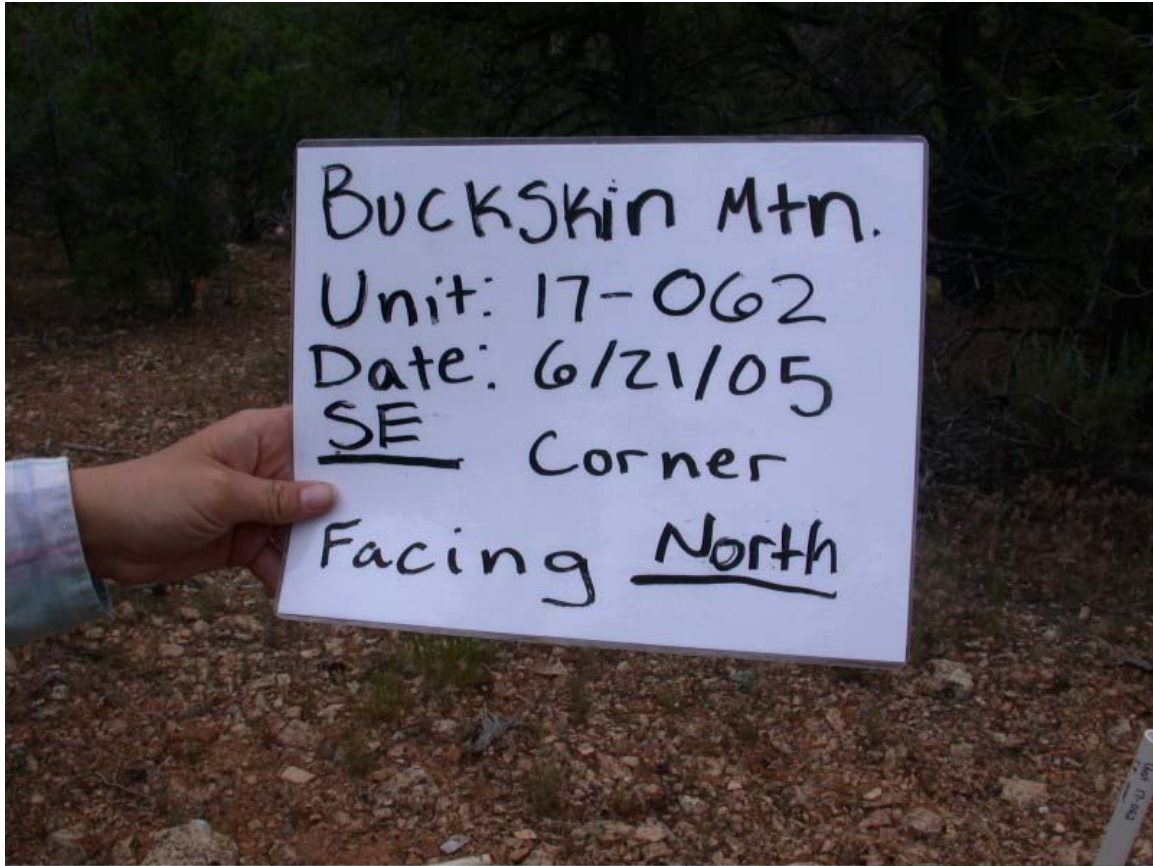 Buckskin Mtn.
Unit: 17-062
Date: 6/21/05
SE Corner
Facing North
17-062